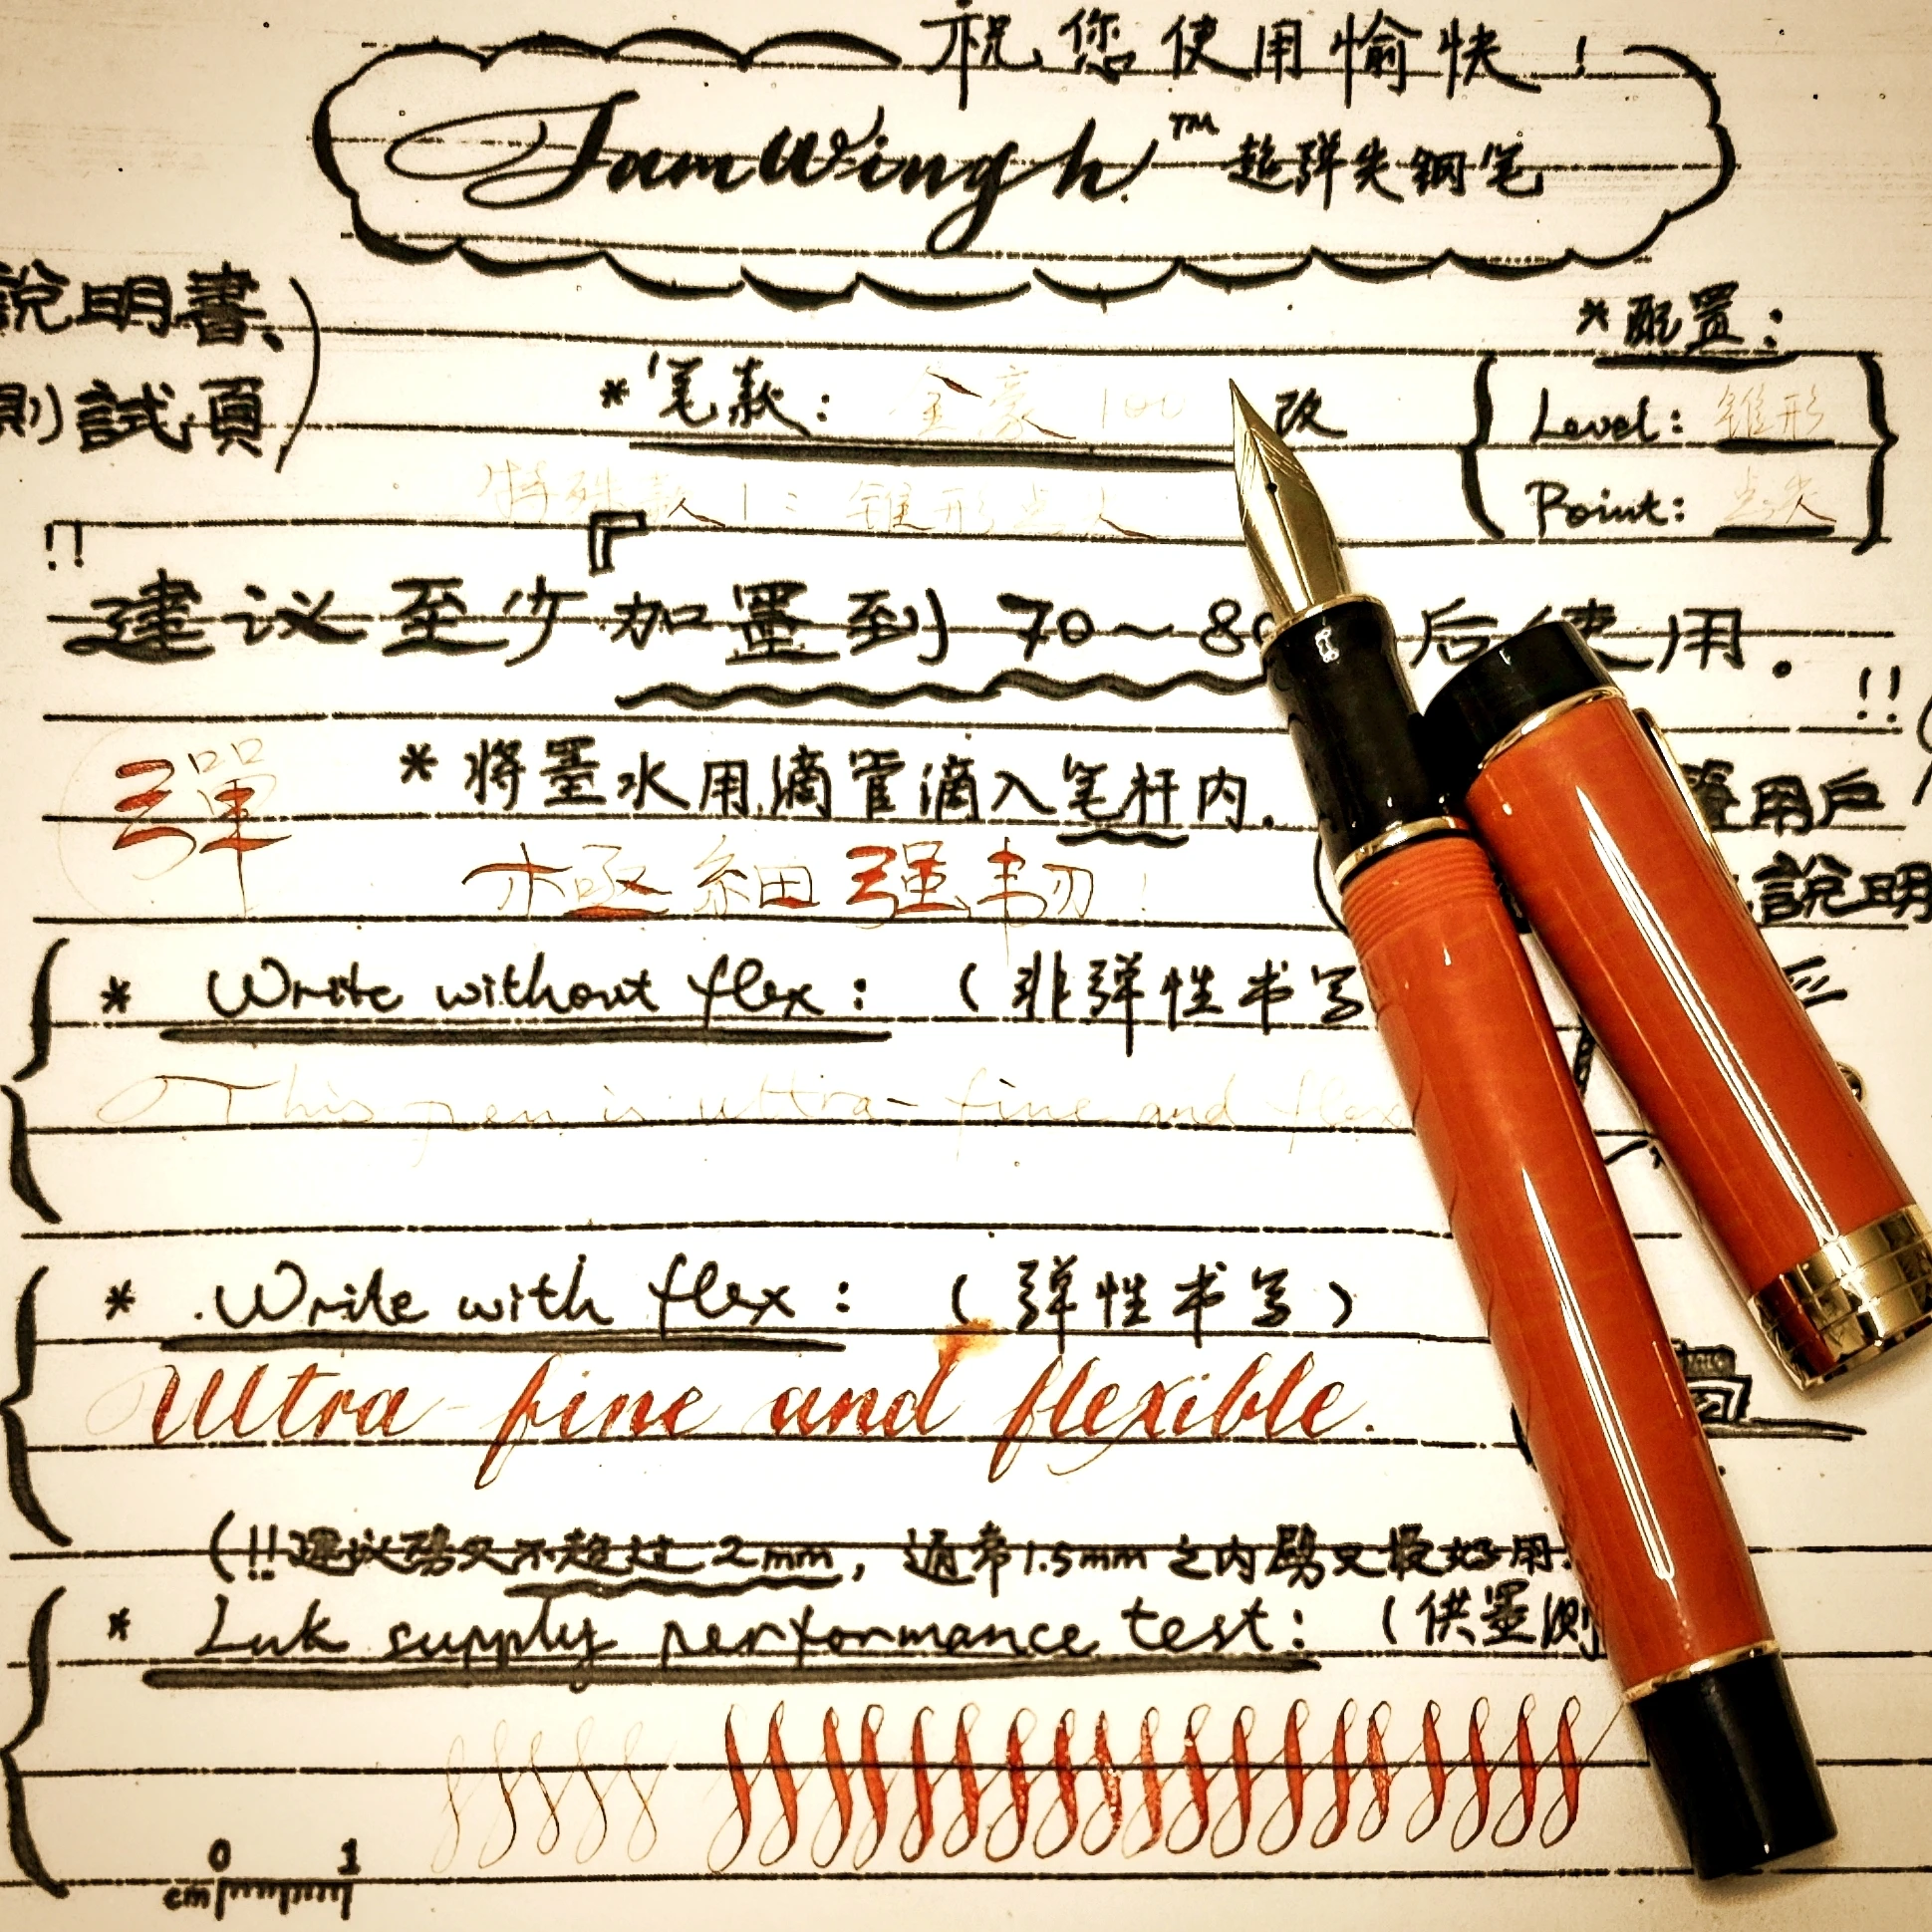 祝您使用愉快!
SamWingh.™ 超弹尖钢笔
說明書、
測試頁)
*配置:
*笔款: 金豪 100 改
Level: 锥形
特殊款1: 锥形点尖
Point: 点尖
!!
建议至少『加墨到 70～80 后使用.
!!
彈
*将墨水用滴管滴入笔杆内.
用戶
極細强韧!
說明
* Write without flex: (非弹性书写
This pen is ultra-fine and flex
* Write with flex: (弹性书写)
Ultra-fine and flexible.
(!!建议劈叉不超过2mm, 通常1.5mm之内劈叉最好用.
* Ink supply performance test: (供墨测
0 1
cm